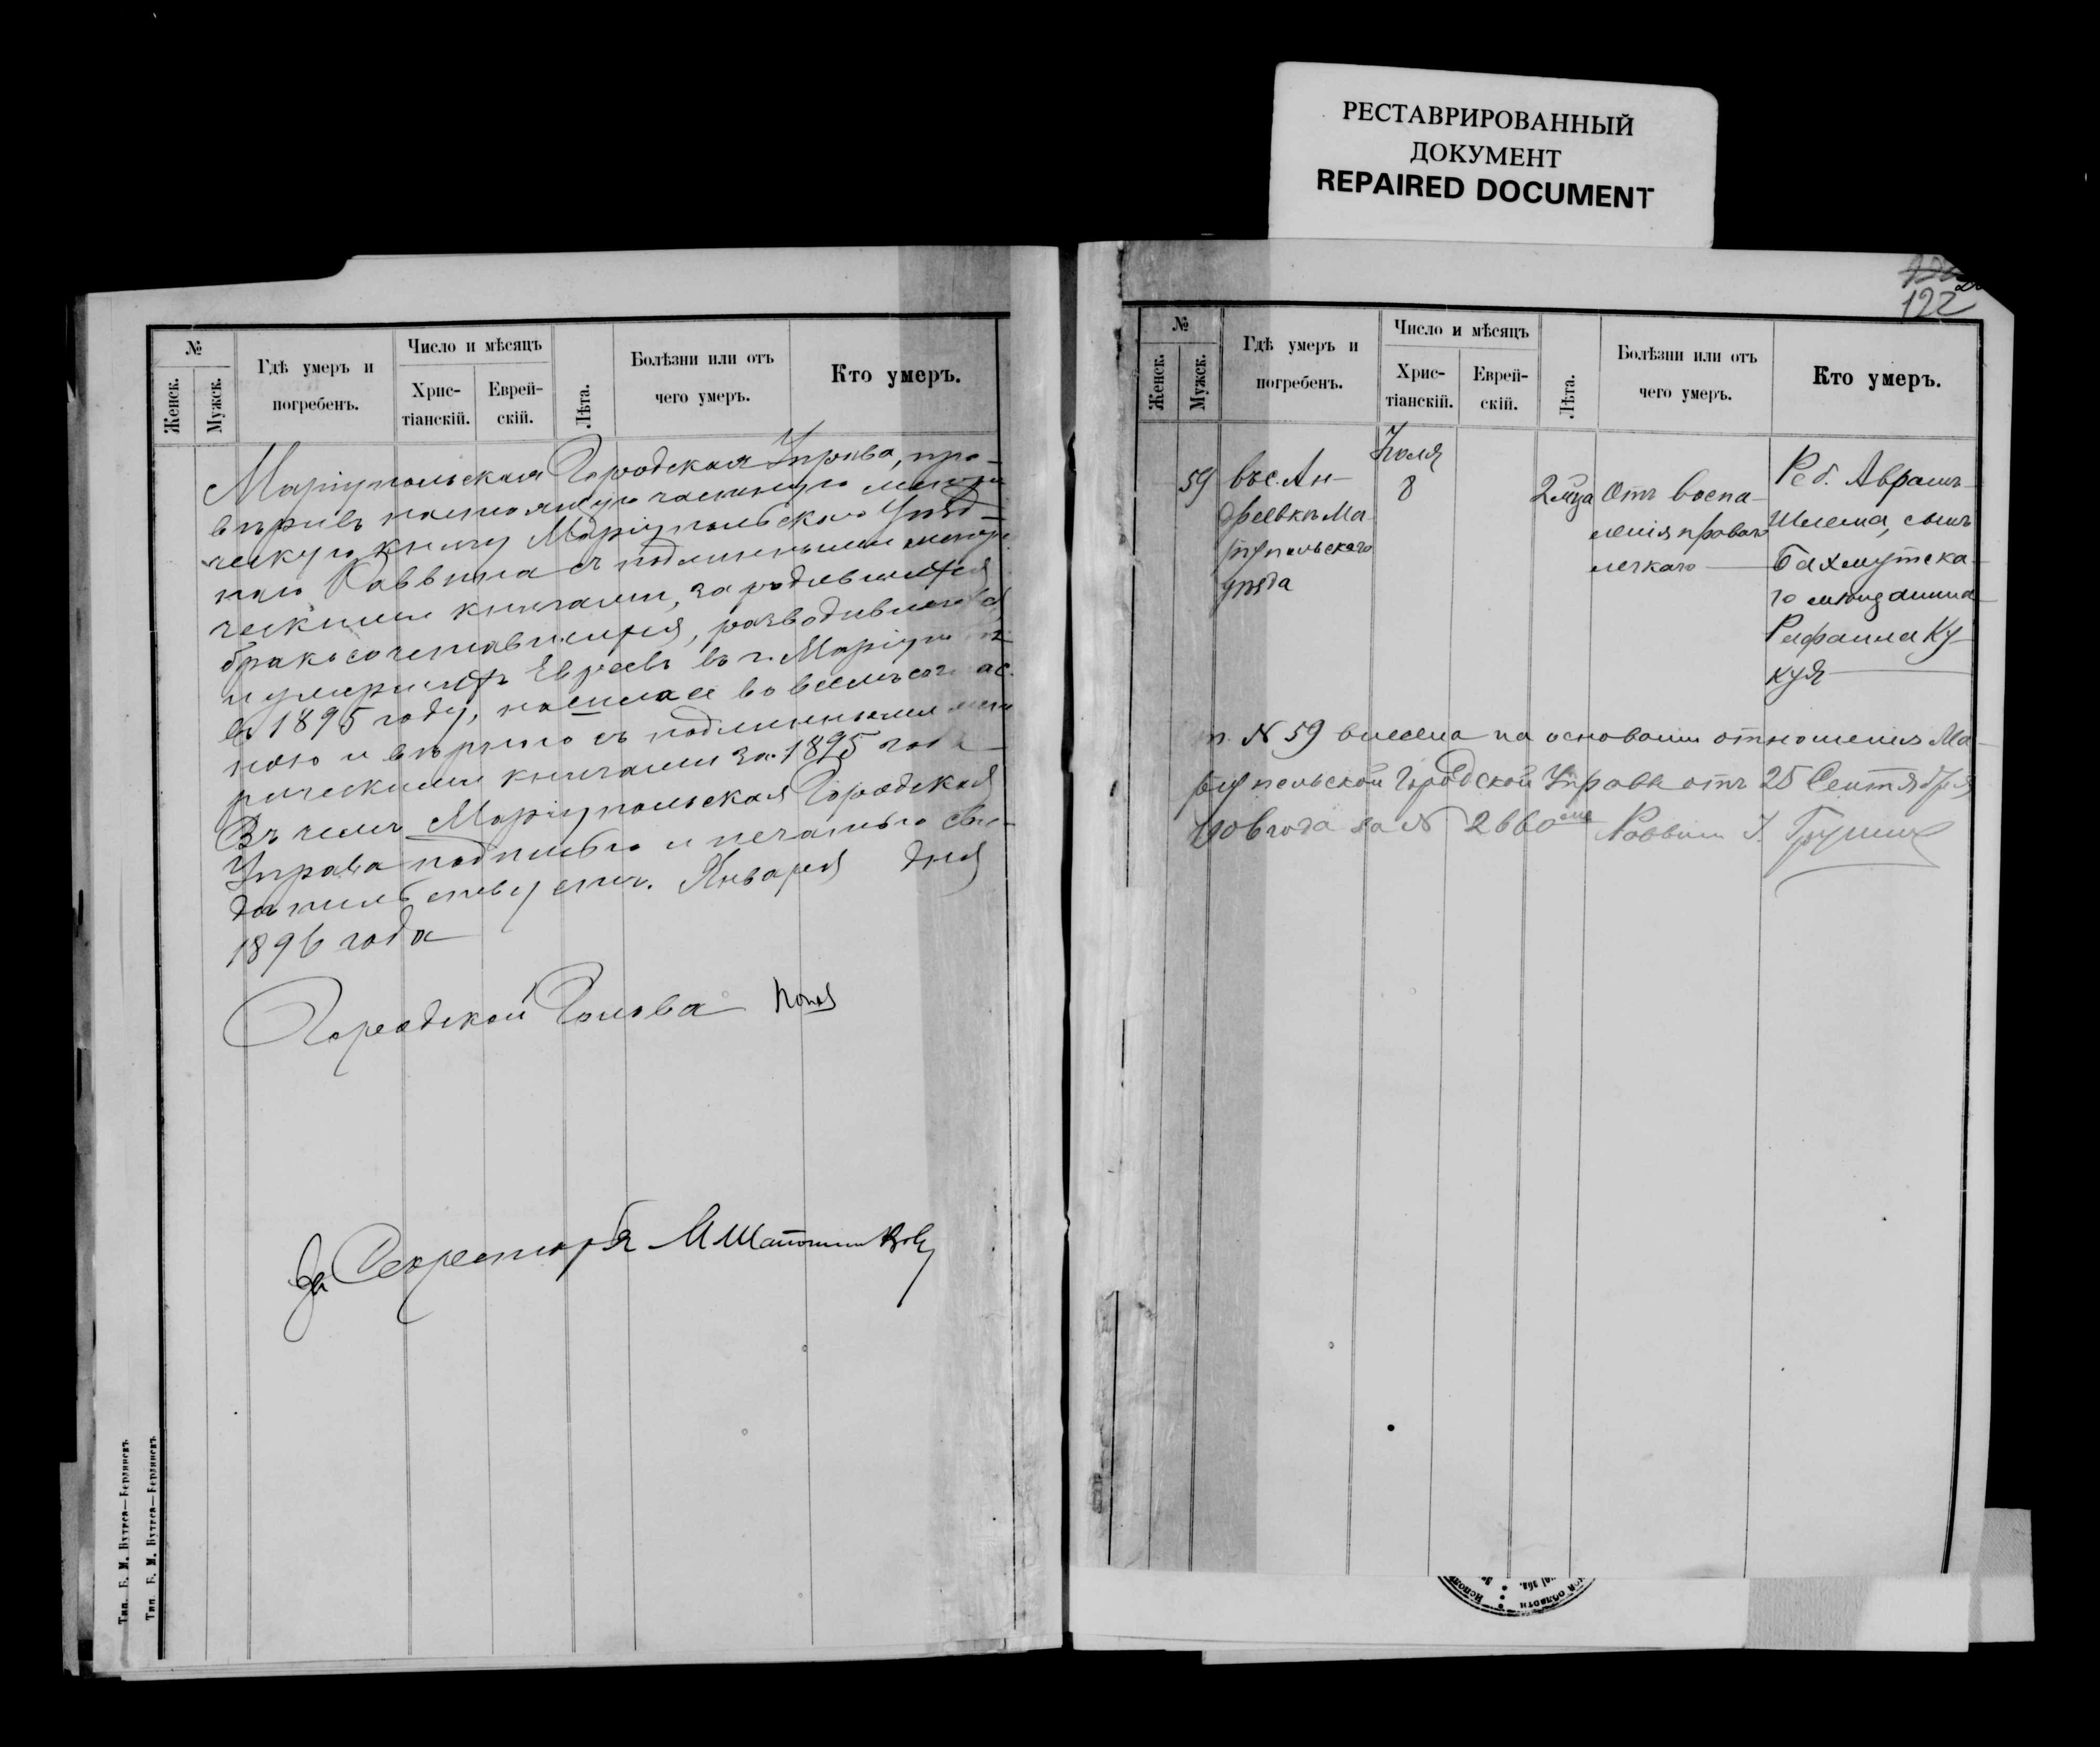 РЕСТАВРИРОВАННЫЙ
ДОКУМЕНТ
REPAIRED DOCUMENT
№
Женск.
Мужск.
Гдѣ умеръ и
погребенъ.
Число и мѣсяцъ
Хрис-
тіанскій.
Еврей-
скій.
Лѣта.
Болѣзни или отъ
чего умеръ.
Кто умеръ.
Маріупольская Городская Управа, про-
вѣривъ настоящую
ческую книгу Маріупольскаго Уѣзд-
наго Раввина съ подлинными
ческими книгами, за родившихся,
бракосочетавшихся, разводившихся
и умершихъ Евреевъ въ г.
въ 1895 году, нашла ее во всемъ
ною и вѣрною съ подлинными
рическими книгами за 1895 годъ
Въ чемъ Маріупольская Городская
Управа подписью и печатью сви-
дѣтельствуетъ. Января дня
1896 года
Городской Голова
За Секретаря
Тип. Б. М. Вутреа—Бердянскъ.
Тип. Б. М. Вутреа—Бердянскъ.
122
№
Женск.
Мужск.
Гдѣ умеръ и
погребенъ.
Число и мѣсяцъ
Хрис-
тіанскій.
Еврей-
скій.
Лѣта.
Болѣзни или отъ
чего умеръ.
Кто умеръ.
59
въ с. Ан-
дреевкѣ Ма-
ріупольскаго
уѣзда
Іюля
8
2 мѣса
Отъ воспа-
ленія праваго
легкаго
Реб. Аврамъ-
Шлема, сынъ
Бахмутска-
го мѣщанина
Рафаила Ку-
куя
№ 59 внесена на основаніи отношенія Ма-
ріупольской Городской Управы отъ 25 Сентября
1906 года за № 2660 Раввинъ